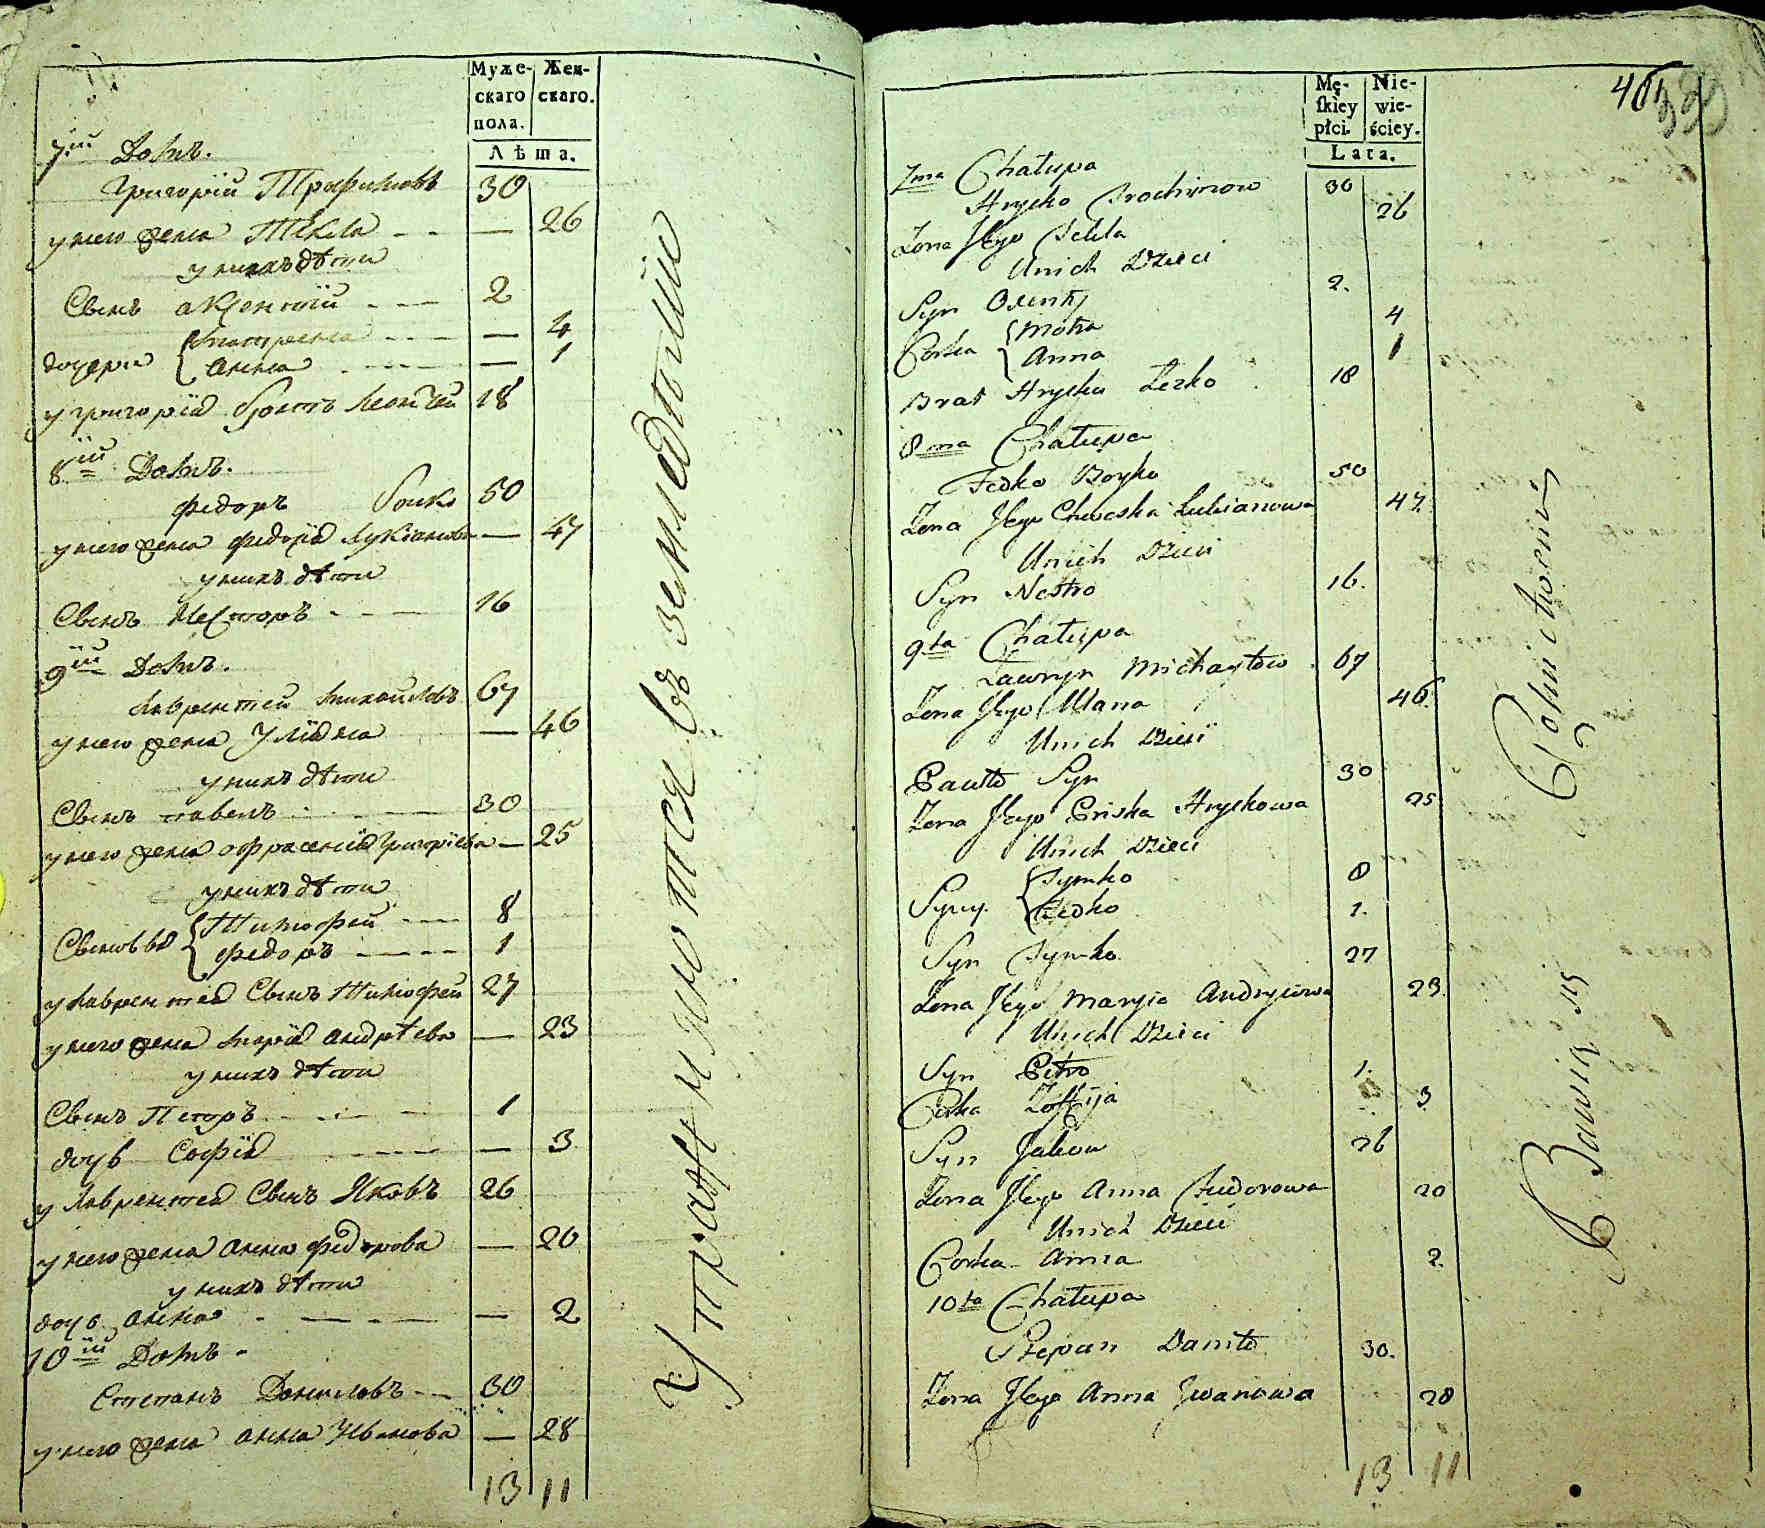 Муже-
скаго
пола.
Жен-
скаго.
Лѣта.
7ій Домъ.
Григорій Трофимовъ 30
у него жена Текла — 26
у нихъ дѣти
Сынъ аксентій 2
дочери { матрена — 4
анна — 1
у григорія братъ Леонтей 18
8ій Домъ.
федоръ Боико 50
у него жена федора Лукіянова — 47
у нихъ дѣти
Сынъ Несторъ 16
9ій Домъ.
Лаврентей михаиловъ 67
у него жена Уліяна — 46
у нихъ дѣти
Сынъ павелъ 30
у него жена офрасенія Григоріева — 25
у нихъ дѣти
Сыновья { Тимофей 8
федоръ 1
у Лаврентея Сынъ Тимофей 27
у него жена марія андрѣева — 23
у нихъ дѣти
Сынъ Петръ 1
дочь Софія — 3
у Лаврентея Сынъ Яковъ 26
у него жена анна федорова — 20
у нихъ дѣти
дочь анна — 2
10ій Домъ.
Степанъ Даниловъ 30
у него жена анна Иванова — 28
13 11
Упражняются въ земледѣліи
Mę-
skiey
płci.
Nie-
wie-
ściey.
Lata.
7ma Chałupa
Hrycko Trochimow 30
Zona Jego Tekla 26
Unich Dzieci
Syn Oxenty 2.
Corka { Motra 4
Anna 1
Brat Hrycka Lezko 18
8ma Chałupa
Fedko Boyko 50
Zona Jego Chweska Lukianowa 47.
Unich Dzieci
Syn Nestro 16.
9ta Chałupa
Ławryn Michayłow 67
Zona Jego Ulana 46.
Unich Dzieci
Pawło Syn 30
Zona Jego Priska Hryckowa 25
Unich Dzieci
Syny { Tymko 8
Fedko 1.
Syn Tymko 27
Zona Jego Maryia Andryiowa 23.
Unich Dzieci
Syn Petro 1.
Corka Zofija 3
Syn Jakow 26
Zona Jego Anna Fiudorowa 20
Unich Dzieci
Corka Anna 2.
10ta Chałupa
Stepan Daniło 30.
Zona Jego Anna Jwanowa 28
13 11
Bawią się Rolnictwem